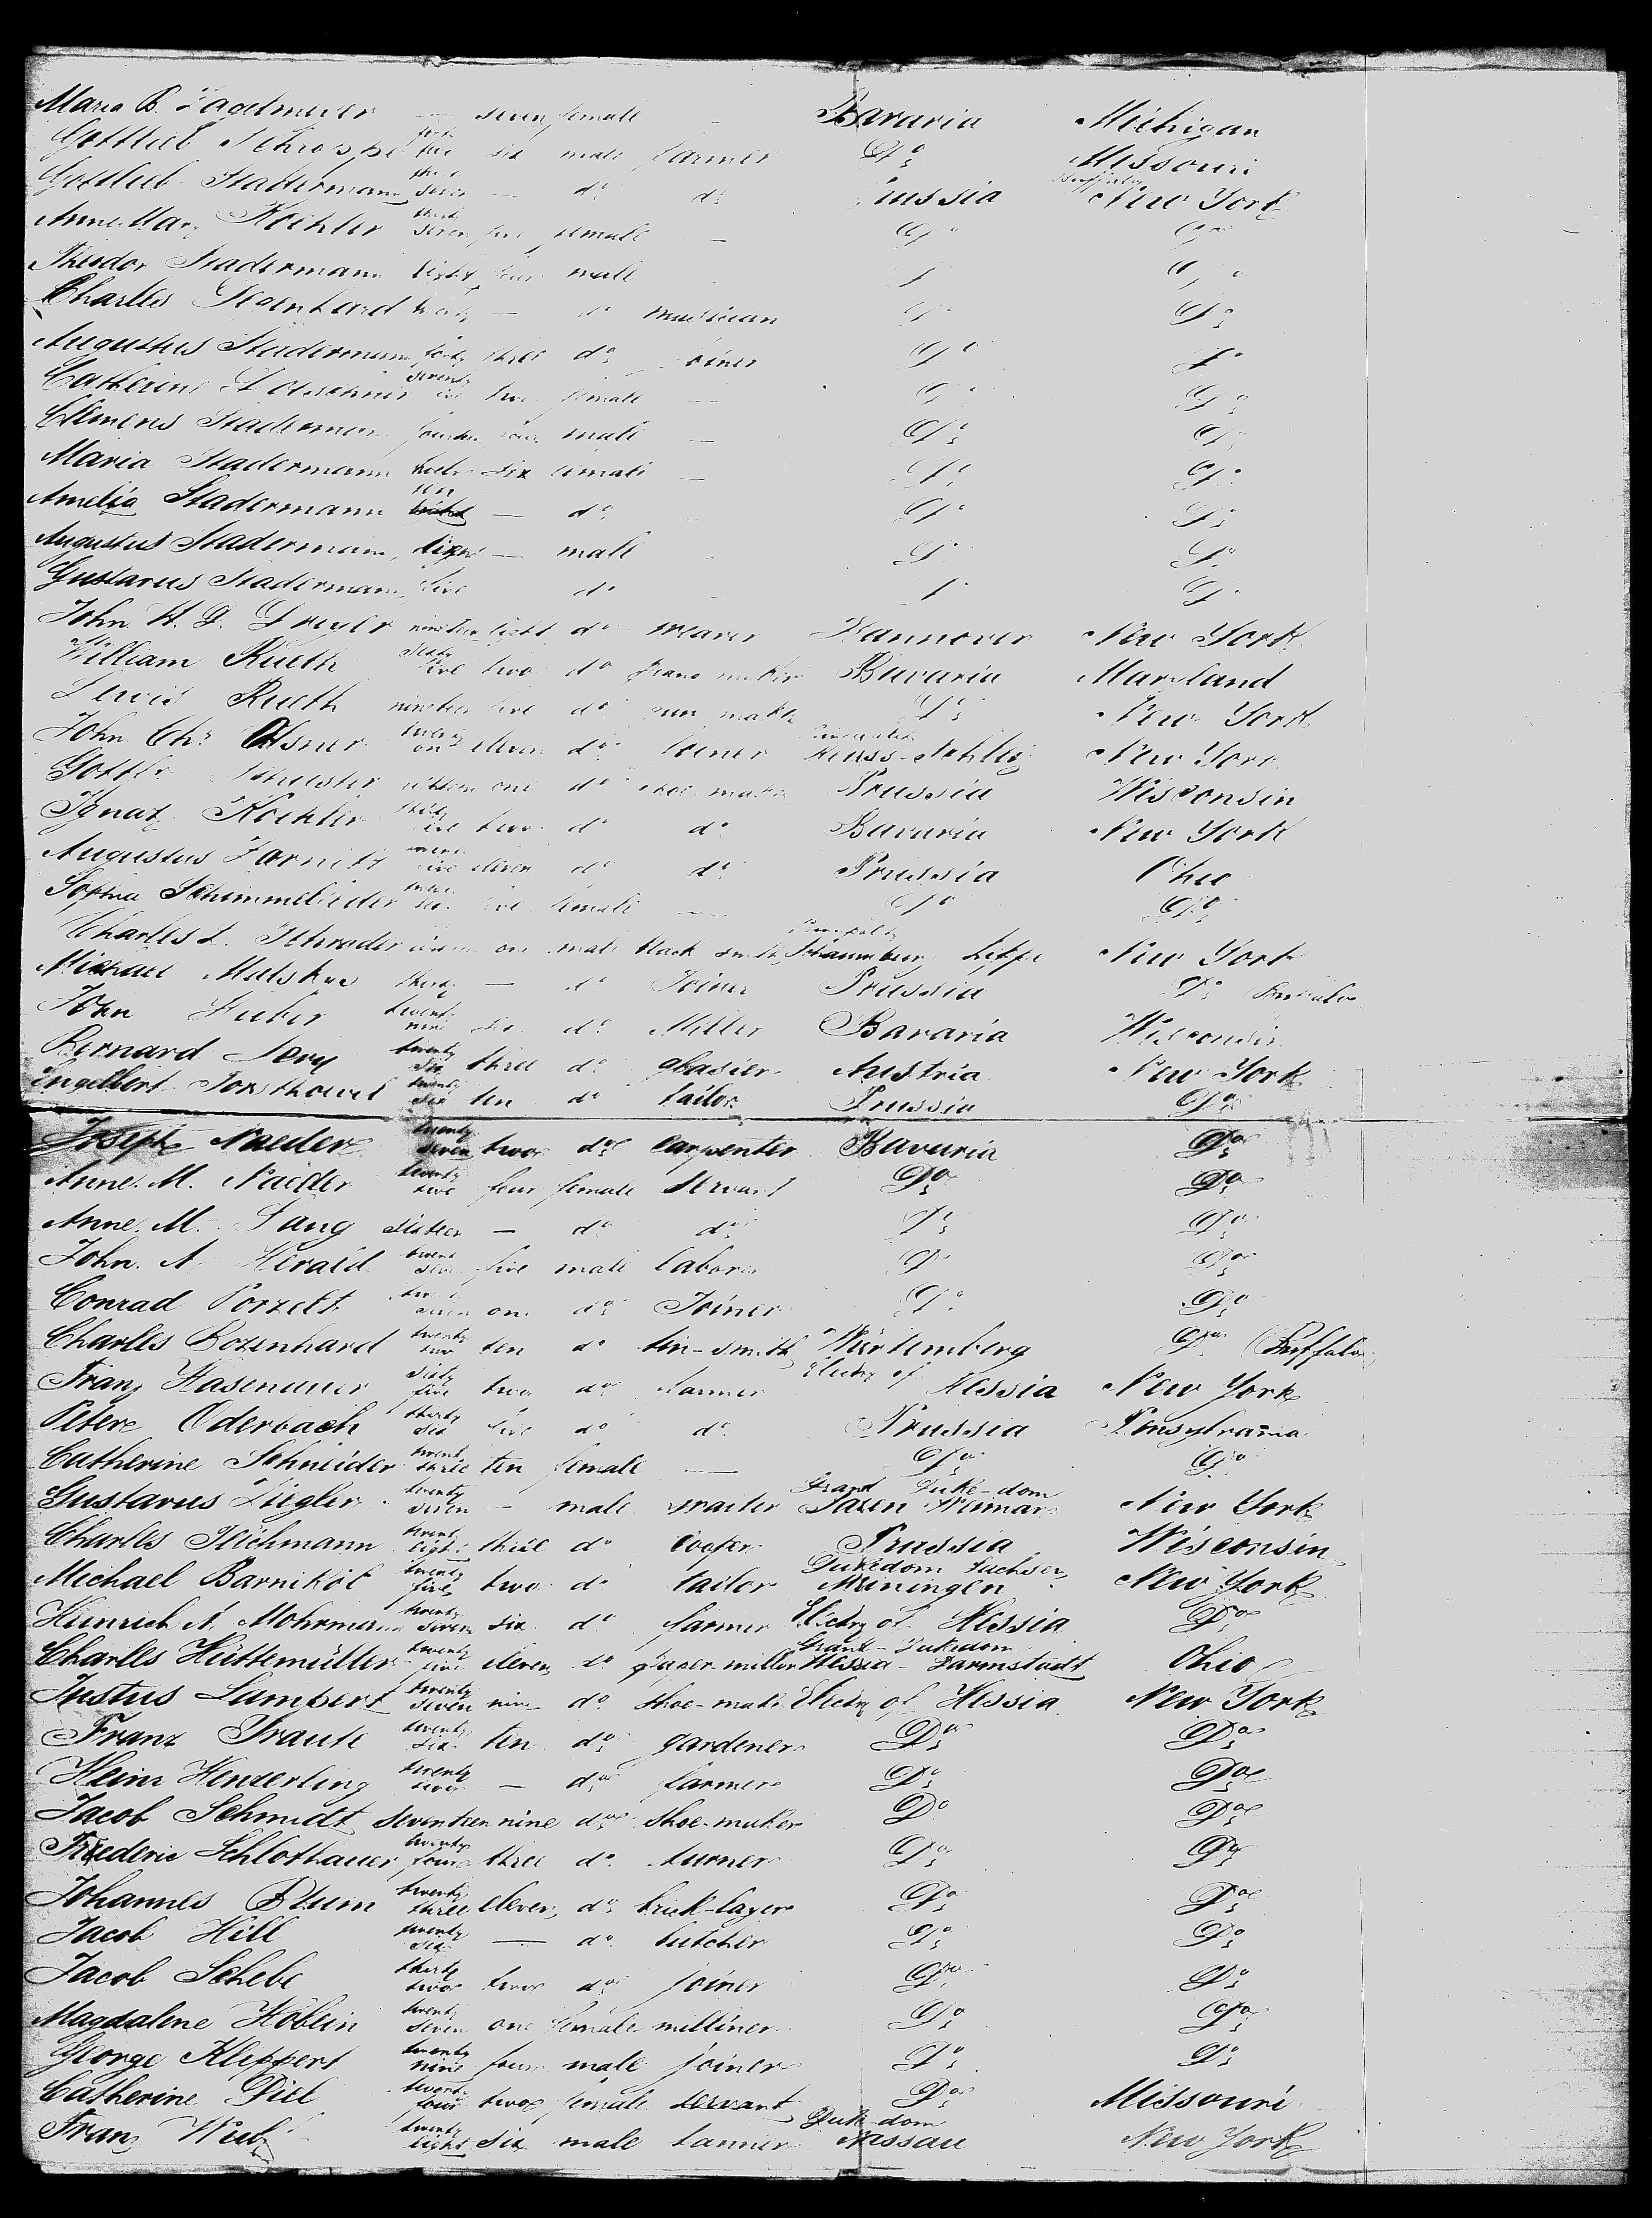 Maria B. seven female — Bavaria Michigan
Gottlieb six male farmer Do Missouri
Gottlieb Stadermann thirty seven — do do Prussia Buffalo New York
Anne Mary Koehler thirty seven five female — Do Do
Theodor Stadermann eight four male Do
Charles twenty — do musician Do Do
Augustus Stadermann forty three do Joiner Do Do
Catherine seventy two female — Do Do
Clemens Stadermann fourteen four male — Do Do
Maria Stadermann twelve six female — Do Do
Amelia Stadermann ten — do Do Do
Augustus Stadermann, eight — male Do Do
Gustavus Stadermann, five do Do Do
John H. D. Dreyer nineteen eight do weaver Hannover New York
William Rueth sixty five two do piano maker Bavaria Maryland
Lewis Rueth nineteen five do gun maker Do New York
John Chr. Olsner twenty one eleven do Joiner Reuss-Schleiz New York
Schuster one do shoe-maker Prussia Wisconsin
Ignatz Koehler thirty five two do do Bavaria New York
Augustus five eleven do do Prussia Ohio
Sophia female — Do Do
Charles L. Schroder one male black smith Schaumburg Lippe New York
Michael thirty — do Joiner Prussia Do Buffalo
John Huber twenty nine six do Miller Bavaria Wisconsin
Bernard Levy twenty six three do glasier Austria New York
Engelbert twenty six ten do tailor Prussia Do
Joseph Naeder twenty seven two do carpenter Bavaria Do
Anne. M. Naeder twenty two four female servant Do Do
Anne. M. Lang sixteen — do do Do Do
John. A. Herald twenty five male laborer Do Do
Conrad Porzelt seven one do Joiner Do Do
Charles Bozenhard twenty two ten do tin-smith Würtemberg Do Buffalo
Franz Hasenauer sixty five two do farmer Electry of Hessia New York
Peter Oderbach thirty six five do do Prussia Pensylvania
Catherine Schneider twenty three ten female — Do Do
Gustavus Ziegler twenty seven — male waiter Grand Duke-dom Saxen Weimar New York
Charles Teichmann twenty eight three do cooper Prussia Wisconsin
Michael Barnikol twenty five two do tailor Dukedom Sachsen Meiningen New York
Heinrich A. Mohrmann twenty seven six do farmer Electry of Hessia Do
Charles Hüttemüller twenty five eleven do paper-miller Grand-Dukedom Hessia-Darmstadt Ohio
Justus Lambert twenty seven nine do shoe-maker Electry of Hessia New York
Franz Traute twenty six ten do gardener Do Do
Heinr Henzerling twenty two — do farmer Do Do
Jacob Schmidt seventeen nine do shoe-maker Do Do
Frederic Schlothauer twenty four three do turner Do Do
Johannes Blum twenty three eleven do brick-layer Do Do
Jacob Hill twenty six — do butcher Do Do
Jacob Schebe thirty two two do joiner Do Do
Magdalene Höblein twenty seven one female milliner Do Do
George Kleppert twenty nine four male joiner Do Do
Catherine Diel twenty four two female servant Do Missouri
Franz twenty eight six male tanner Duke-dom Nassau New York